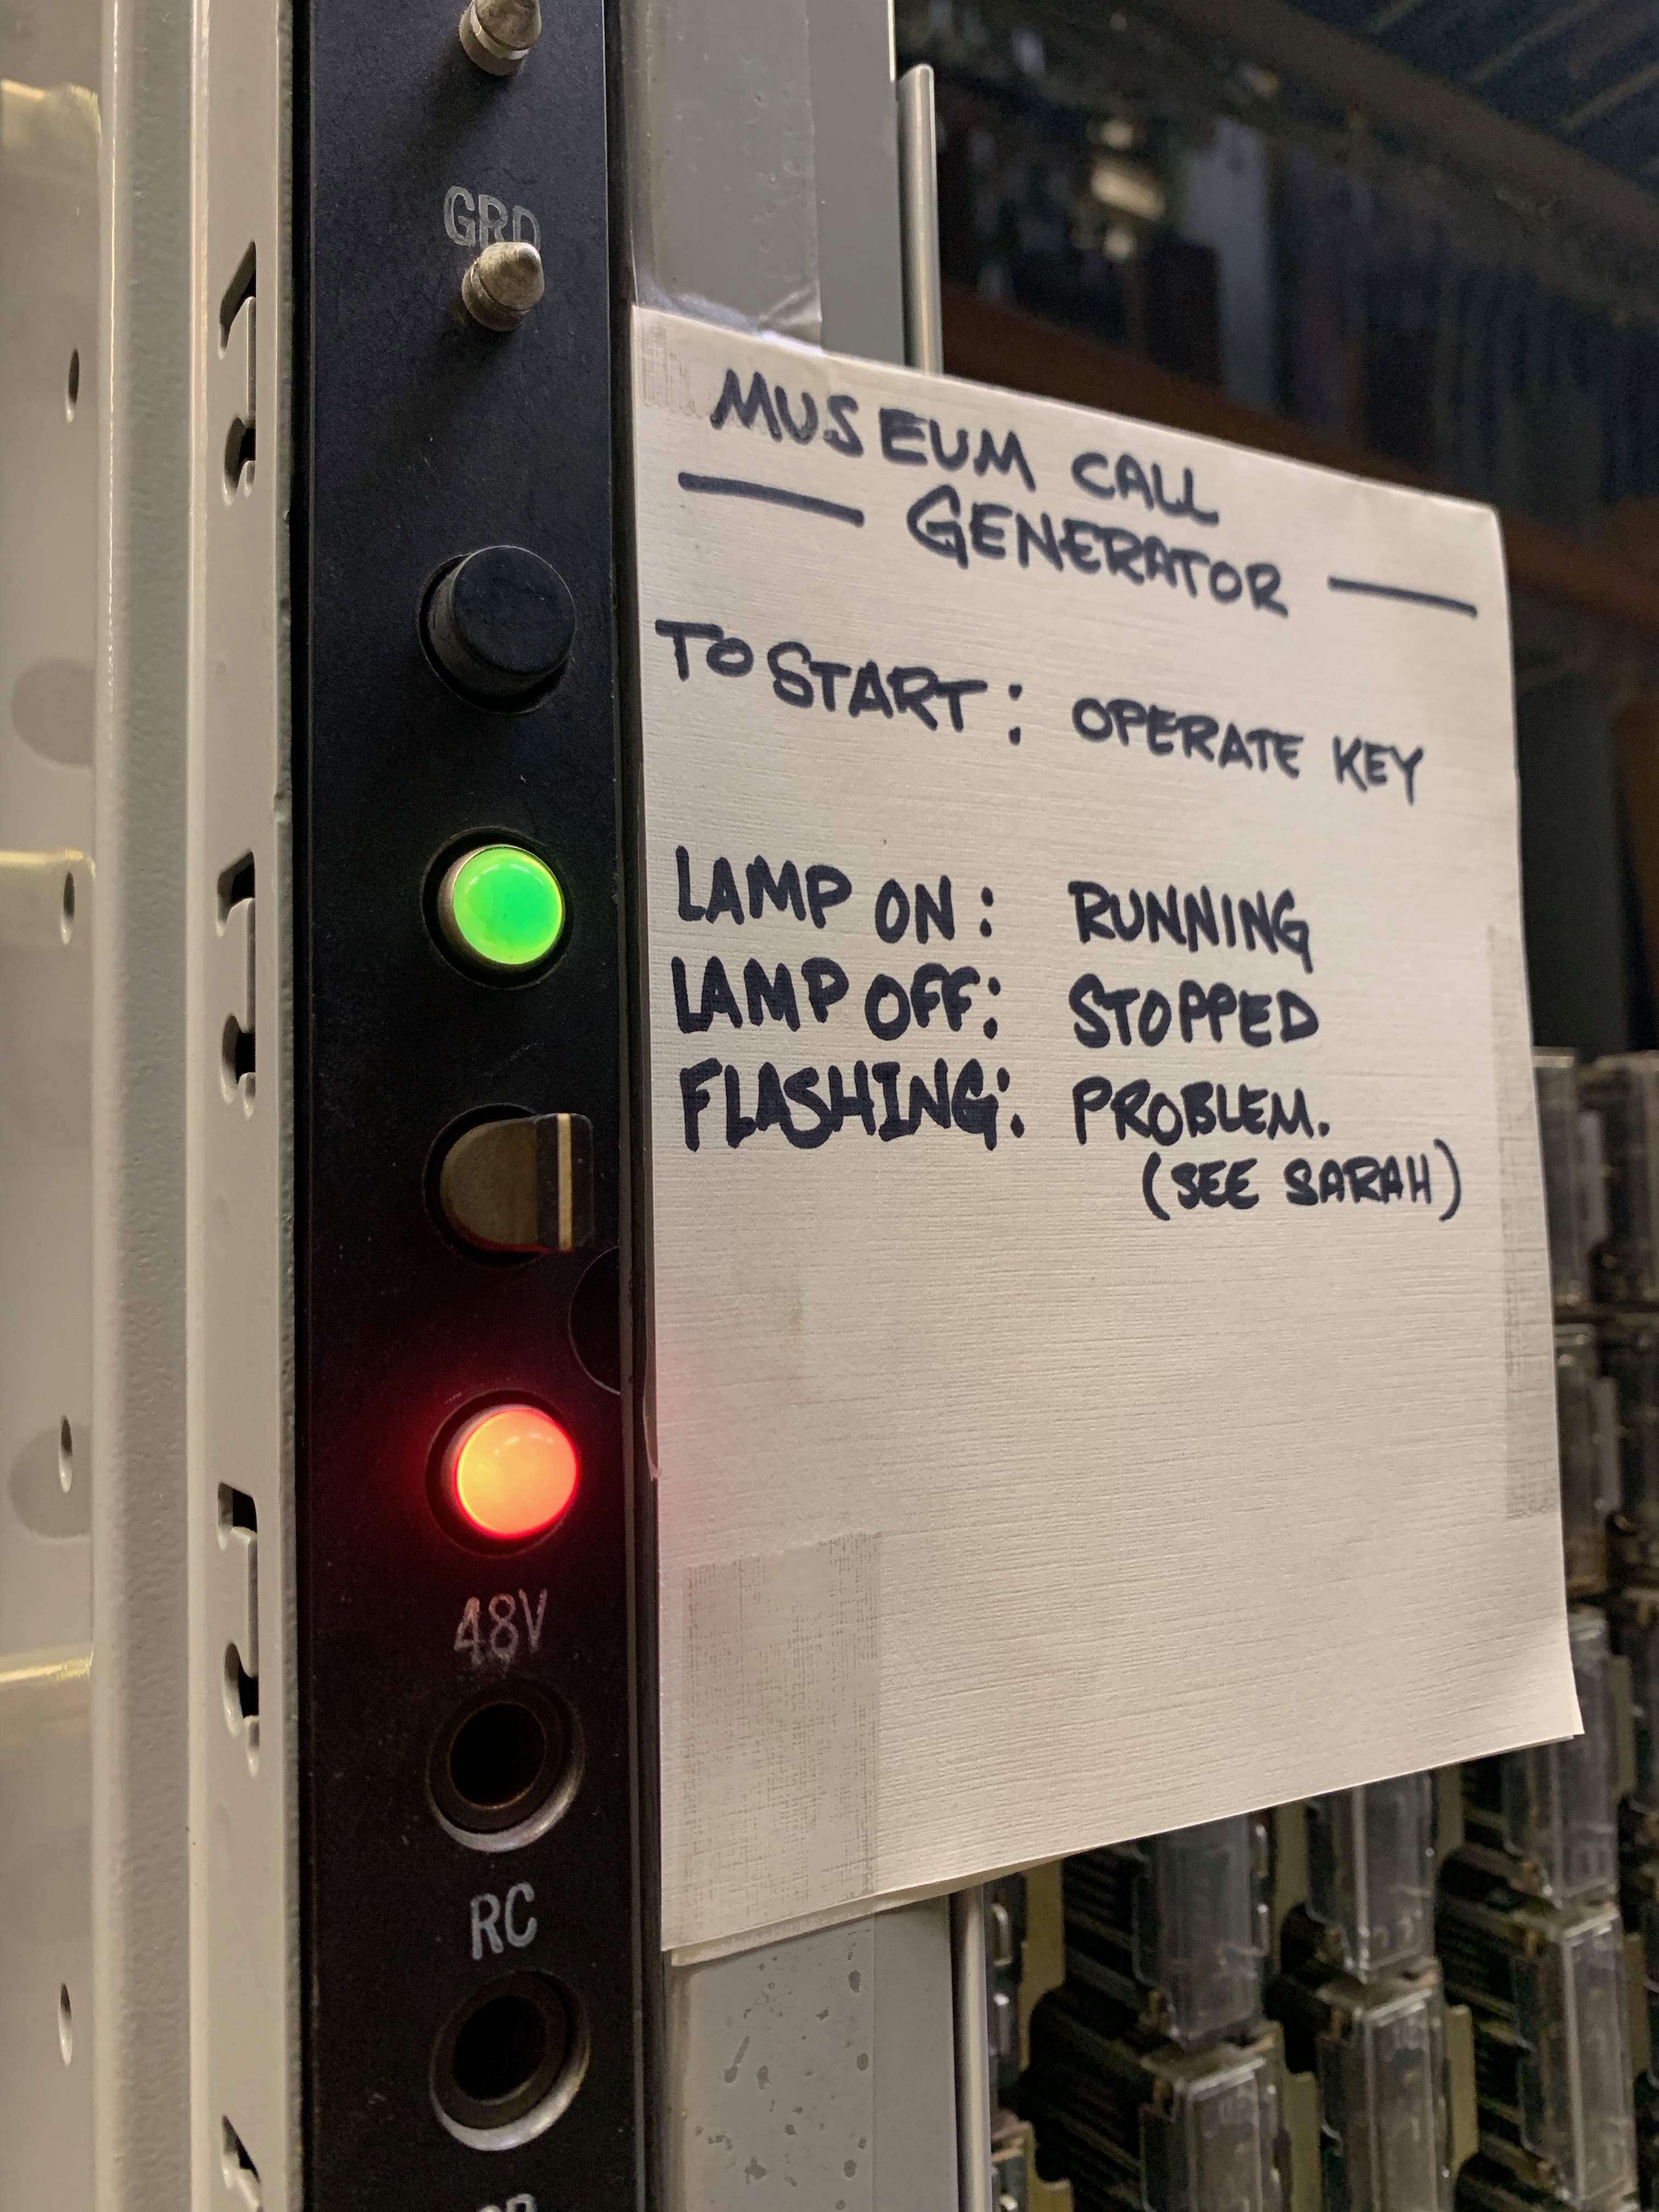 GRD
MUSEUM CALL
— GENERATOR —
TO START: OPERATE KEY
LAMP ON: RUNNING
LAMP OFF: STOPPED
FLASHING: PROBLEM.
(SEE SARAH)
48V
RC